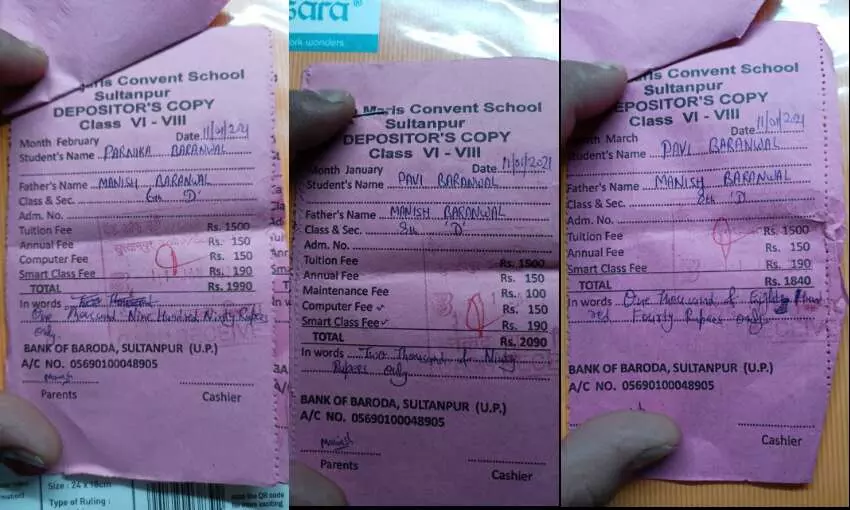 aris Convent School
Sultanpur
DEPOSITOR'S COPY
Class VI - VIII
Month February Date 11/01/2021
Student's Name PARNIKA BARANWAL
Father's Name MANISH BARANWAL
Class & Sec. 6th 'D'
Adm. No.
Tuition Fee Rs. 1500
Annual Fee Rs. 150
Computer Fee Rs. 150
Smart Class Fee Rs. 190
TOTAL Rs. 1990
In words Two Thousand
One Thousand Nine Hundred Ninty Rupees
only
BANK OF BARODA, SULTANPUR (U.P.)
A/C NO. 05690100048905
Manish
Parents Cashier
Size : 24 x 18cm
Type of Ruling :
sara®
ork wonders.
Maris Convent School
Sultanpur
DEPOSITOR'S COPY
Class VI - VIII
Month January Date 11/01/2021
Student's Name PAVI BARANWAL
Father's Name MANISH BARANWAL
Class & Sec. 8th 'D'
Adm. No.
Tuition Fee Rs. 1500
Annual Fee Rs. 150
Maintenance Fee Rs. 100
Computer Fee Rs. 150
Smart Class Fee Rs. 190
TOTAL Rs. 2090
In words Two Thousand & Ninty
Rupees only
BANK OF BARODA, SULTANPUR (U.P.)
A/C NO. 05690100048905
Manish
Parents Cashier
aris Convent School
Sultanpur
DEPOSITOR'S COPY
Class VI - VIII
th March Date 11/01/2021
Student's Name PAVI BARANWAL
Father's Name MANISH BARANWAL
Class & Sec. 8th 'D'
Adm. No.
Tuition Fee Rs. 1500
Annual Fee Rs. 150
Smart Class Fee Rs. 190
TOTAL Rs. 1840
In words One Thousand & Eight Hund
red Fourty Rupees only
BANK OF BARODA, SULTANPUR (U.P.)
A/C NO. 05690100048905
Cashier